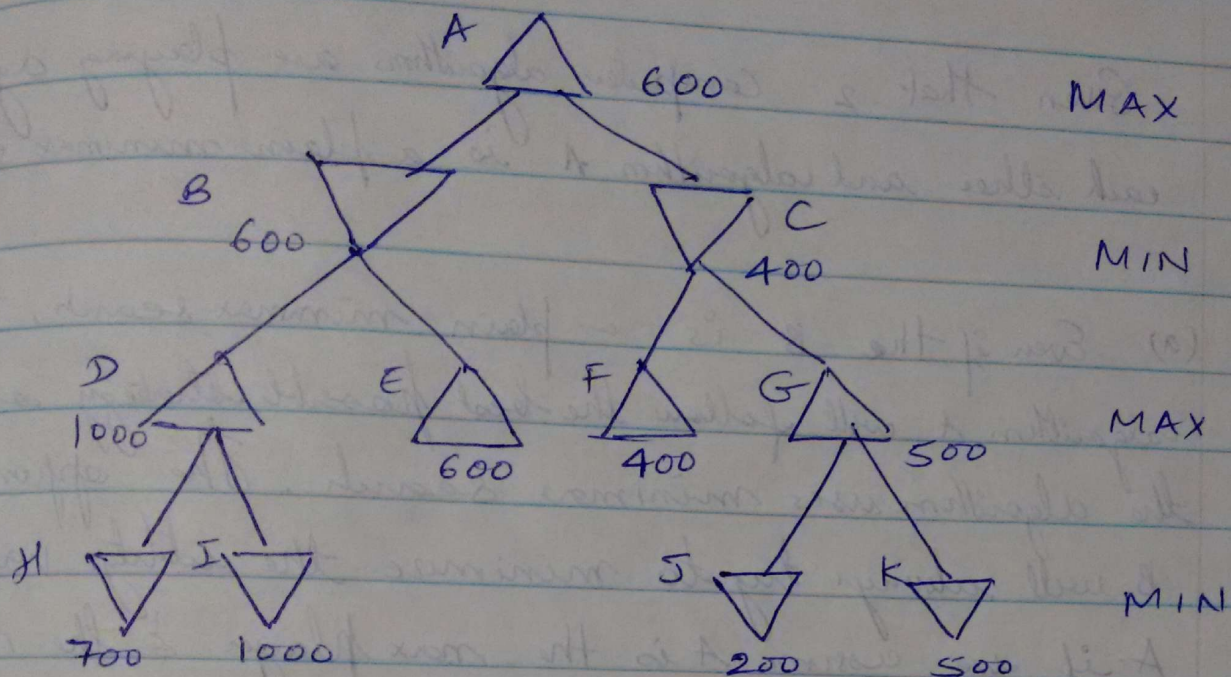 A
600 MAX
B
600
C
400 MIN
D
1000
E
600
F
400
G
500 MAX
H
700
I
1000
J
200
K
500
MIN